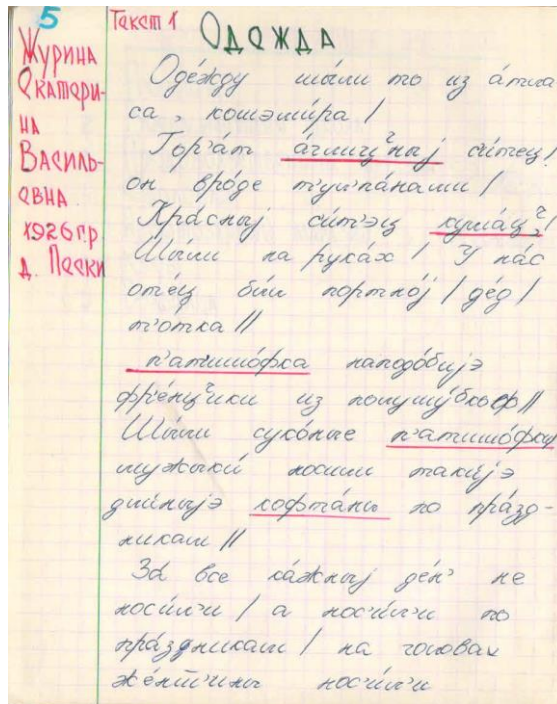 5
Текст 1
Одежда
Журина
Екатери-
на
Василь-
евна
1926 г.р
д. Пески
Оде́жду шы́ли то из а́тла-
са, кошэми́ра /
Гор'а́т а́глицкыj си́тец /
он вро́де т'ул'па́нами /
Кра́сныj си́тэц кума́ц /
Шы́ли на рука́х / У на́с
оте́ц был портно́j / де́д /
т'о́тка //
п'атишо́фка наподо́биjэ
фре́нчики из полушу́бкоф //
Шы́ли суко́ные п'атишо́фки
мужыки́ носили таки́jэ
дли́ныjэ кофта́ны по пра́зд-
никам //
За́ все ка́жныj де́н' не
носи́л'и / а нос'и́л'и по
пра́здникам / на головах
же́нт'ины нос'и́л'и